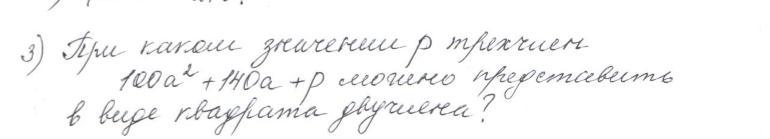 3) При каком значении p трехчлен
100a² + 140a + p можно представить
в виде квадрата двучлена?